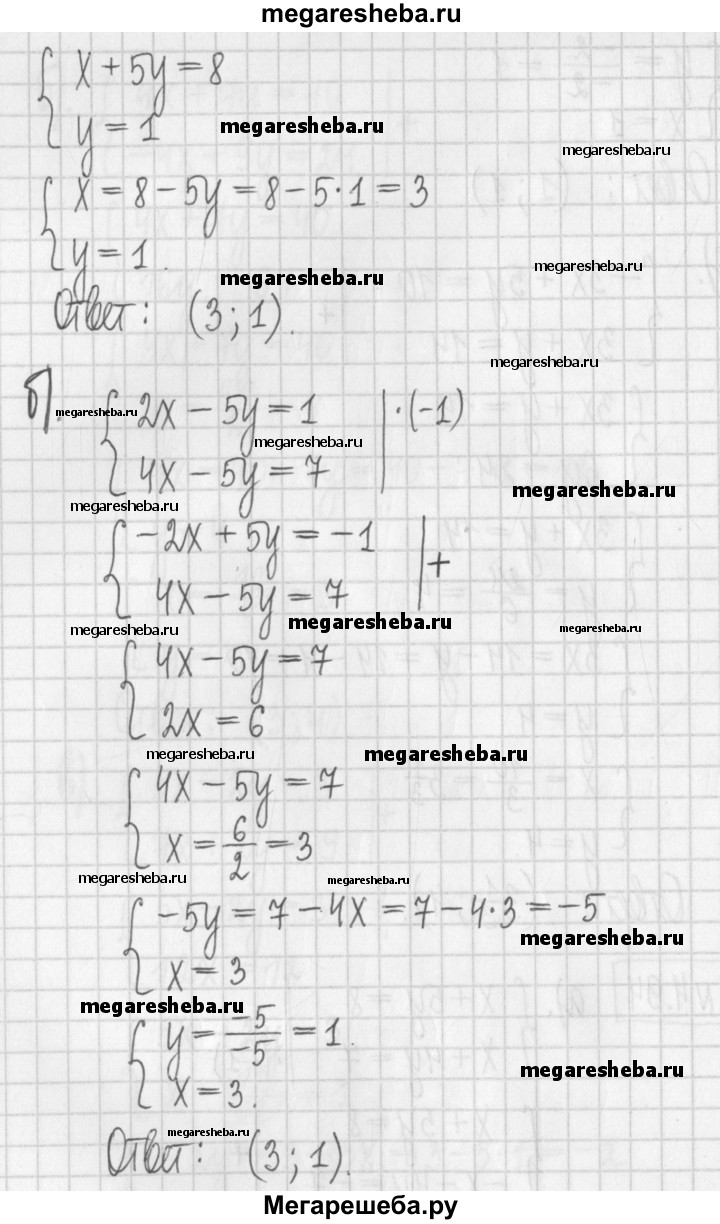 megaresheba.ru
x + 5y = 8
y = 1
megaresheba.ru
megaresheba.ru
x = 8 - 5y = 8 - 5·1 = 3
y = 1.
megaresheba.ru
megaresheba.ru
Ответ: (3; 1).
megaresheba.ru
б). 2x - 5y = 1 | ·(-1)
megaresheba.ru
megaresheba.ru
4x - 5y = 7
megaresheba.ru
megaresheba.ru
-2x + 5y = -1 | +
4x - 5y = 7
megaresheba.ru
megaresheba.ru
megaresheba.ru
4x - 5y = 7
2x = 6
megaresheba.ru
megaresheba.ru
4x - 5y = 7
x = 6/2 = 3
megaresheba.ru
megaresheba.ru
-5y = 7 - 4x = 7 - 4·3 = -5
megaresheba.ru
x = 3
megaresheba.ru
y = -5/-5 = 1.
megaresheba.ru
x = 3.
megaresheba.ru
Ответ: (3; 1).
Мегарешеба.ру